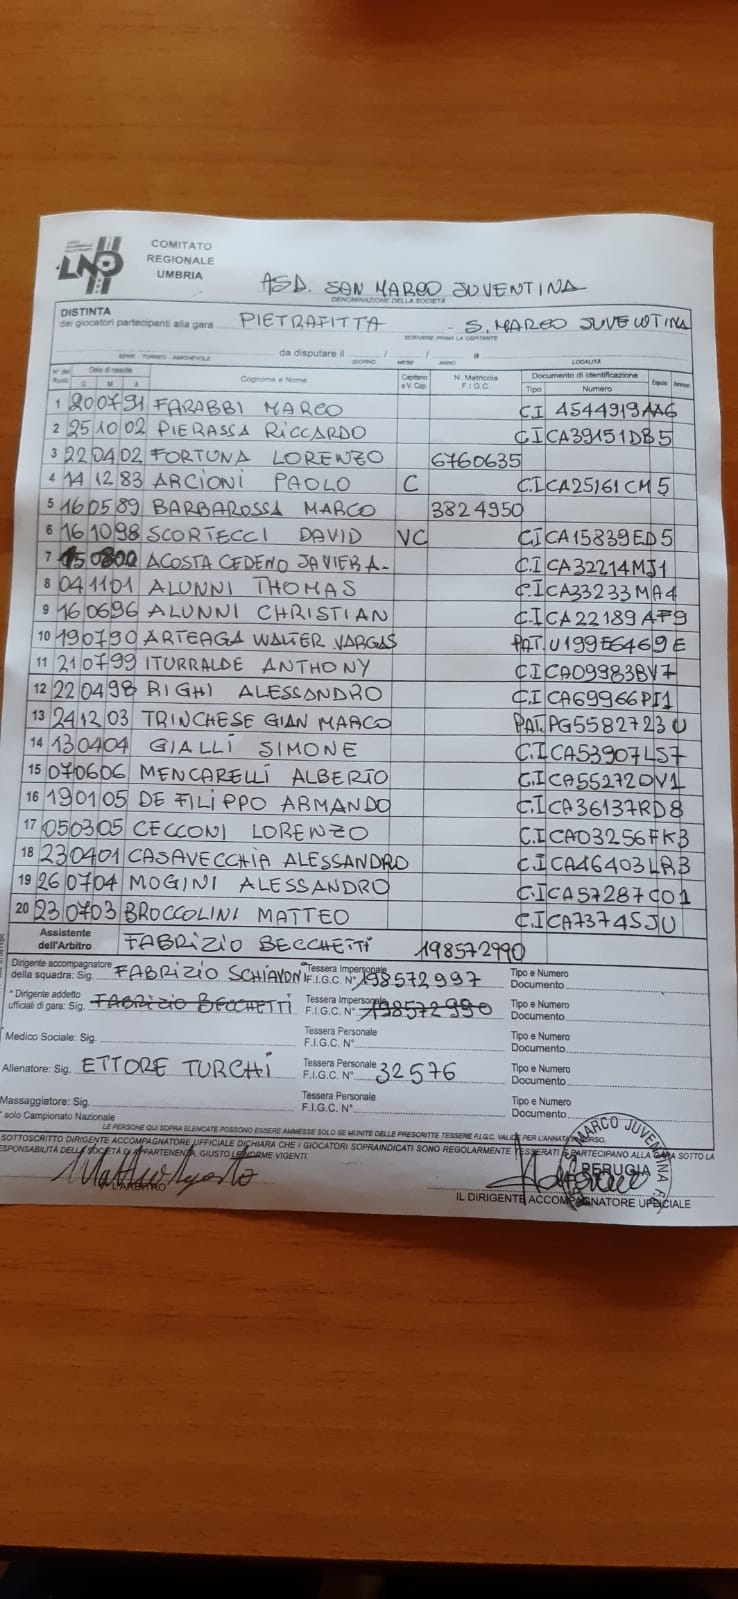 LND
COMITATO
REGIONALE
UMBRIA
ASD. SAN MARCO JUVENTINA
DENOMINAZIONE DELLA SOCIETÀ
DISTINTA
dei giocatori partecipanti alla gara PIETRAFITTA - S. MARCO JUVENTINA
SCRIVERE PRIMA LA OSPITANTE
SERIE - TORNEO - AMICHEVOLE da disputare il GIORNO / MESE / ANNO a LOCALITÀ
N° del Ruolo Data di nascita G M A Cognome e Nome Capitano e V. Cap. N. Matricola F.I.G.C. Documento di identificazione Tipo Numero Espulsi Ammon.
1 20 07 91 FARABBI MARCO C.I 4544919AA6
2 25 10 02 PIERASSA RICCARDO C.I CA39151DB5
3 22 04 02 FORTUNA LORENZO 6760635
4 14 12 83 ARCIONI PAOLO C C.I CA25161CM5
5 16 05 89 BARBAROSSA MARCO 3824950
6 16 10 98 SCORTECCI DAVID VC C.I CA15839ED5
7 15 08 02 ACOSTA CEDENO JAVIER A. C.I CA32214MJ1
8 04 11 01 ALUNNI THOMAS C.I CA33233MA4
9 16 06 96 ALUNNI CHRISTIAN C.I CA22189AF9
10 19 07 90 ARTEAGA WALTER VARGAS PAT. U199E6469E
11 21 07 99 ITURRALDE ANTHONY C.I CA09983BV7
12 22 04 98 RIGHI ALESSANDRO C.I CA69966PI1
13 24 12 03 TRINCHESE GIAN MARCO PAT. PG5582723U
14 13 04 04 GIALLI SIMONE C.I CA53907LS7
15 07 06 06 MENCARELLI ALBERTO C.I CA55272DV1
16 19 01 05 DE FILIPPO ARMANDO C.I CA36137RD8
17 05 03 05 CECCONI LORENZO C.I CA03256FK3
18 23 04 01 CASAVECCHIA ALESSANDRO C.I CA46403LR3
19 26 07 04 MOGINI ALESSANDRO C.I CA57287CO1
20 23 07 03 BROCCOLINI MATTEO C.I CA73745JU
Assistente dell'Arbitro FABRIZIO BECCHETTI 198572990
Dirigente accompagnatore della squadra: Sig. FABRIZIO SCHIAVONI Tessera Impersonale F.I.G.C. N° 198572997 Tipo e Numero Documento
* Dirigente addetto ufficiali di gara: Sig. FABRIZIO BECCHETTI Tessera Impersonale F.I.G.C. N° 198572990 Tipo e Numero Documento
Medico Sociale: Sig. Tessera Personale F.I.G.C. N° Tipo e Numero Documento
Allenatore: Sig. ETTORE TURCHI Tessera Personale F.I.G.C. N° 32576 Tipo e Numero Documento
Massaggiatore: Sig. Tessera Personale F.I.G.C. N° Tipo e Numero Documento
* solo Campionato Nazionale
LE PERSONE QUI SOPRA ELENCATE POSSONO ESSERE AMMESSE SOLO SE MUNITE DELLE PRESCRITTE TESSERE F.I.G.C. VALIDE PER L'ANNATA IN CORSO.
SOTTOSCRITTO DIRIGENTE ACCOMPAGNATORE UFFICIALE DICHIARA CHE I GIOCATORI SOPRAINDICATI SONO REGOLARMENTE TESSERATI E PARTECIPANO ALLA GARA SOTTO LA
RESPONSABILITÀ DELLA SOCIETÀ DI APPARTENENZA, GIUSTO LE NORME VIGENTI.
L'ARBITRO
MARCO JUVENTINA PERUGIA
IL DIRIGENTE ACCOMPAGNATORE UFFICIALE